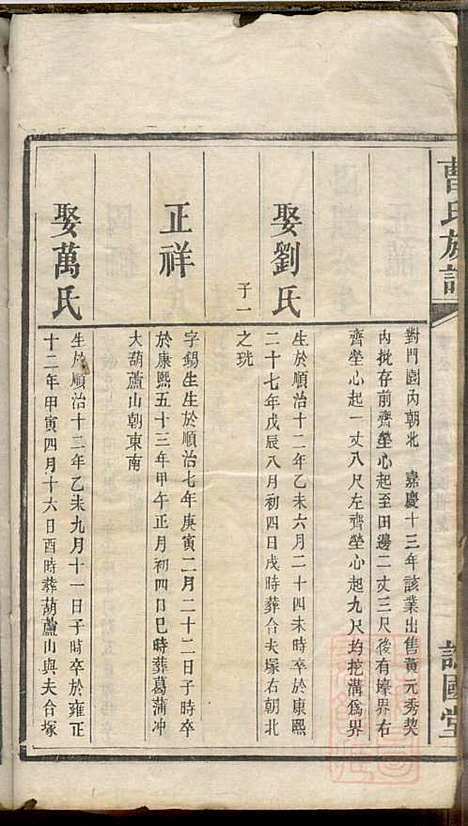 曹氏族譜
對門園內朝北　嘉慶十三年該業出售黃元秀契
內批存前齊塋心起至田邊二丈三尺後有壕界右
齊塋心起一丈八尺左齊塋心起九尺均挖溝為界
娶劉氏
生於順治十二年乙未六月二十四未時卒於康熙
二十七年戊辰八月初四日戌時葬合夫塚右朝北
子一
之珖
正祥
字錫生生於順治七年庚寅二月二十二日子時卒
於康熙五十三年甲午正月初四日巳時葬葛蒲冲
大葫蘆山朝東南
娶萬氏
生於順治十二年乙未九月十一日子時卒於雍正
十二年甲寅四月十六日酉時葬葫蘆山與夫合塚